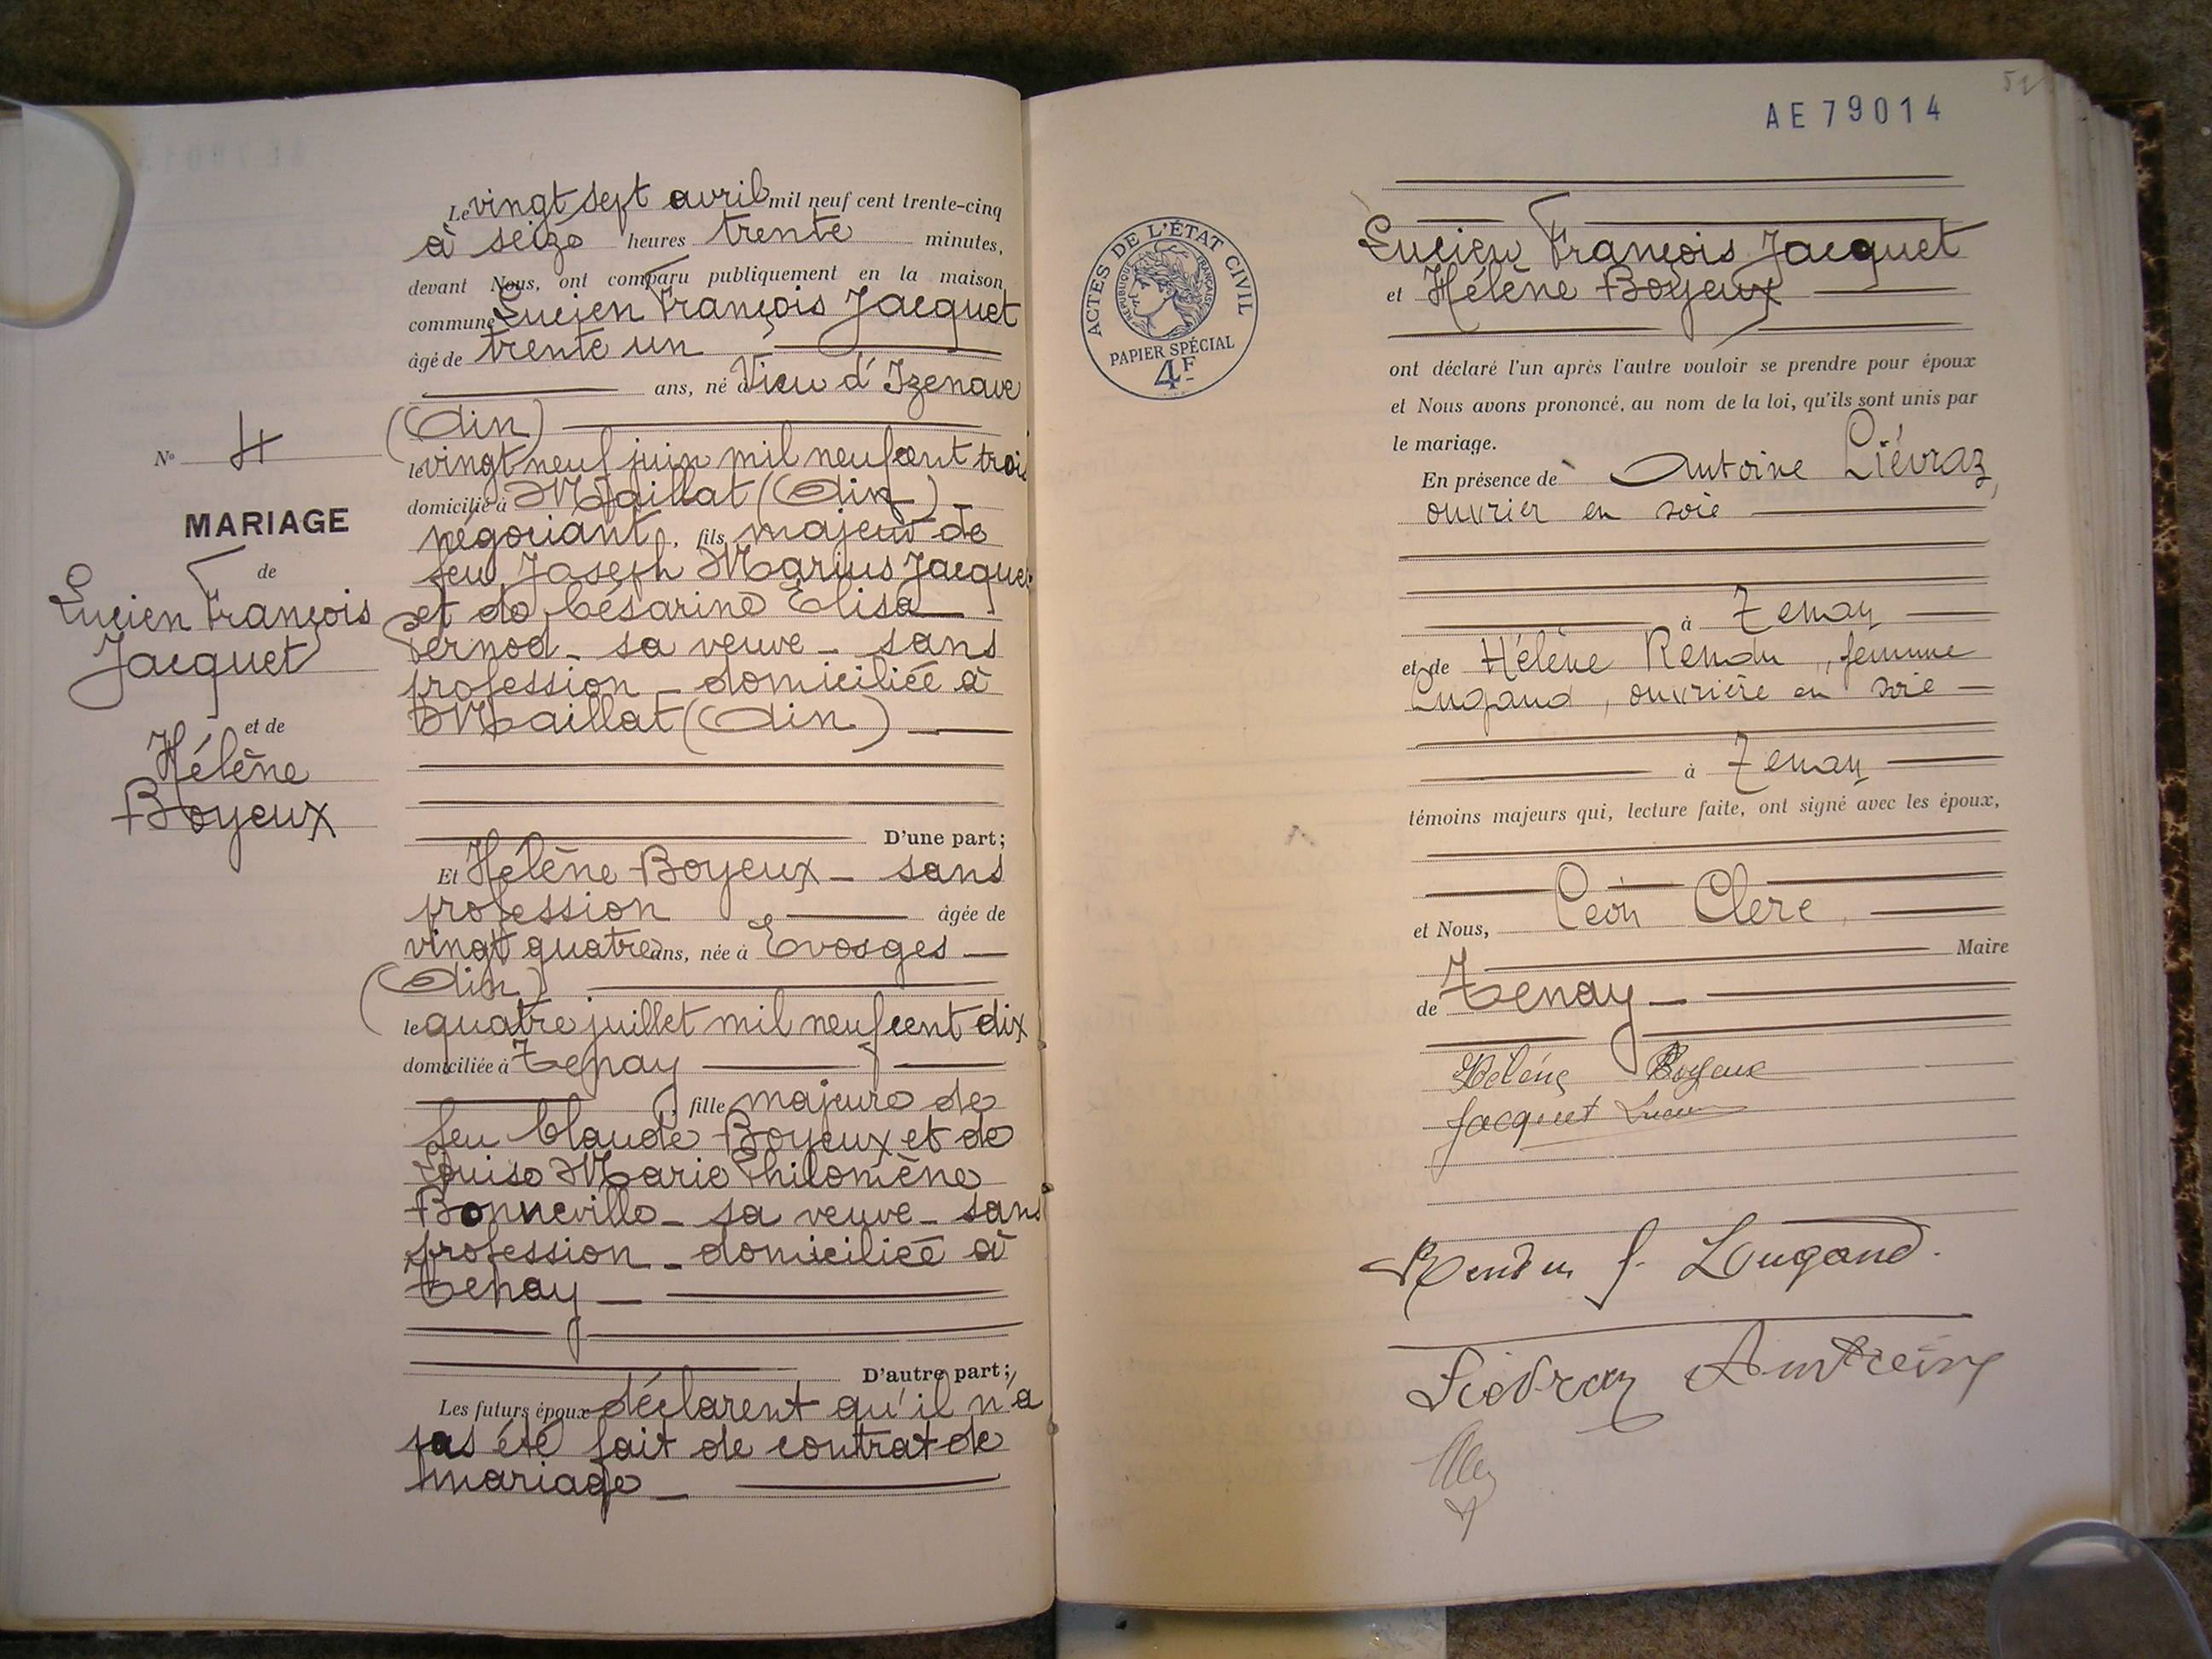 N° 4
MARIAGE
de
Lucien François
Jacquet
et de
Hélène
Boyeux
Le vingt sept avril mil neuf cent trente-cinq
à seize heures trente minutes,
devant Nous, ont comparu publiquement en la maison
commune Lucien François Jacquet
âgé de trente un
ans, né à Vieu d'Izenave
(Ain)
le vingt neuf juin mil neuf cent trois
domicilié à Maillat (Ain)
négociant, fils majeur de
feu Joseph Marius Jacquet
et de Césarine Elisa
Pernod - sa veuve - sans
profession - domiciliée à
Maillat (Ain)
D'une part;
Et Hélène Boyeux - sans
profession âgée de
vingt quatre ans, née à Evosges
(Ain)
le quatre juillet mil neuf cent dix
domiciliée à Tenay
, fille majeure de
feu Claude Boyeux et de
Louise Marie Philomène
Bonneville - sa veuve - sans
profession - domiciliée à
Tenay
D'autre part;
Les futurs époux déclarent qu'il n'a
pas été fait de contrat de
mariage
51
AE 79014
ACTES DE L'ÉTAT CIVIL
RÉPUBLIQUE FRANÇAISE
PAPIER SPÉCIAL
4F
Lucien François Jacquet
et Hélène Boyeux
ont déclaré l'un après l'autre vouloir se prendre pour époux
et Nous avons prononcé, au nom de la loi, qu'ils sont unis par
le mariage.
En présence de Antoine Liévraz,
ouvrier en soie
à Tenay
et de Hélène Rendu, femme
Lugand, ouvrière en soie
à Tenay
témoins majeurs qui, lecture faite, ont signé avec les époux,
et Nous, Léon Clerc,
Maire
de Tenay
Hélène Boyeux
Jacquet Lucien
Rendu f. Lugand.
Liévraz Antoine